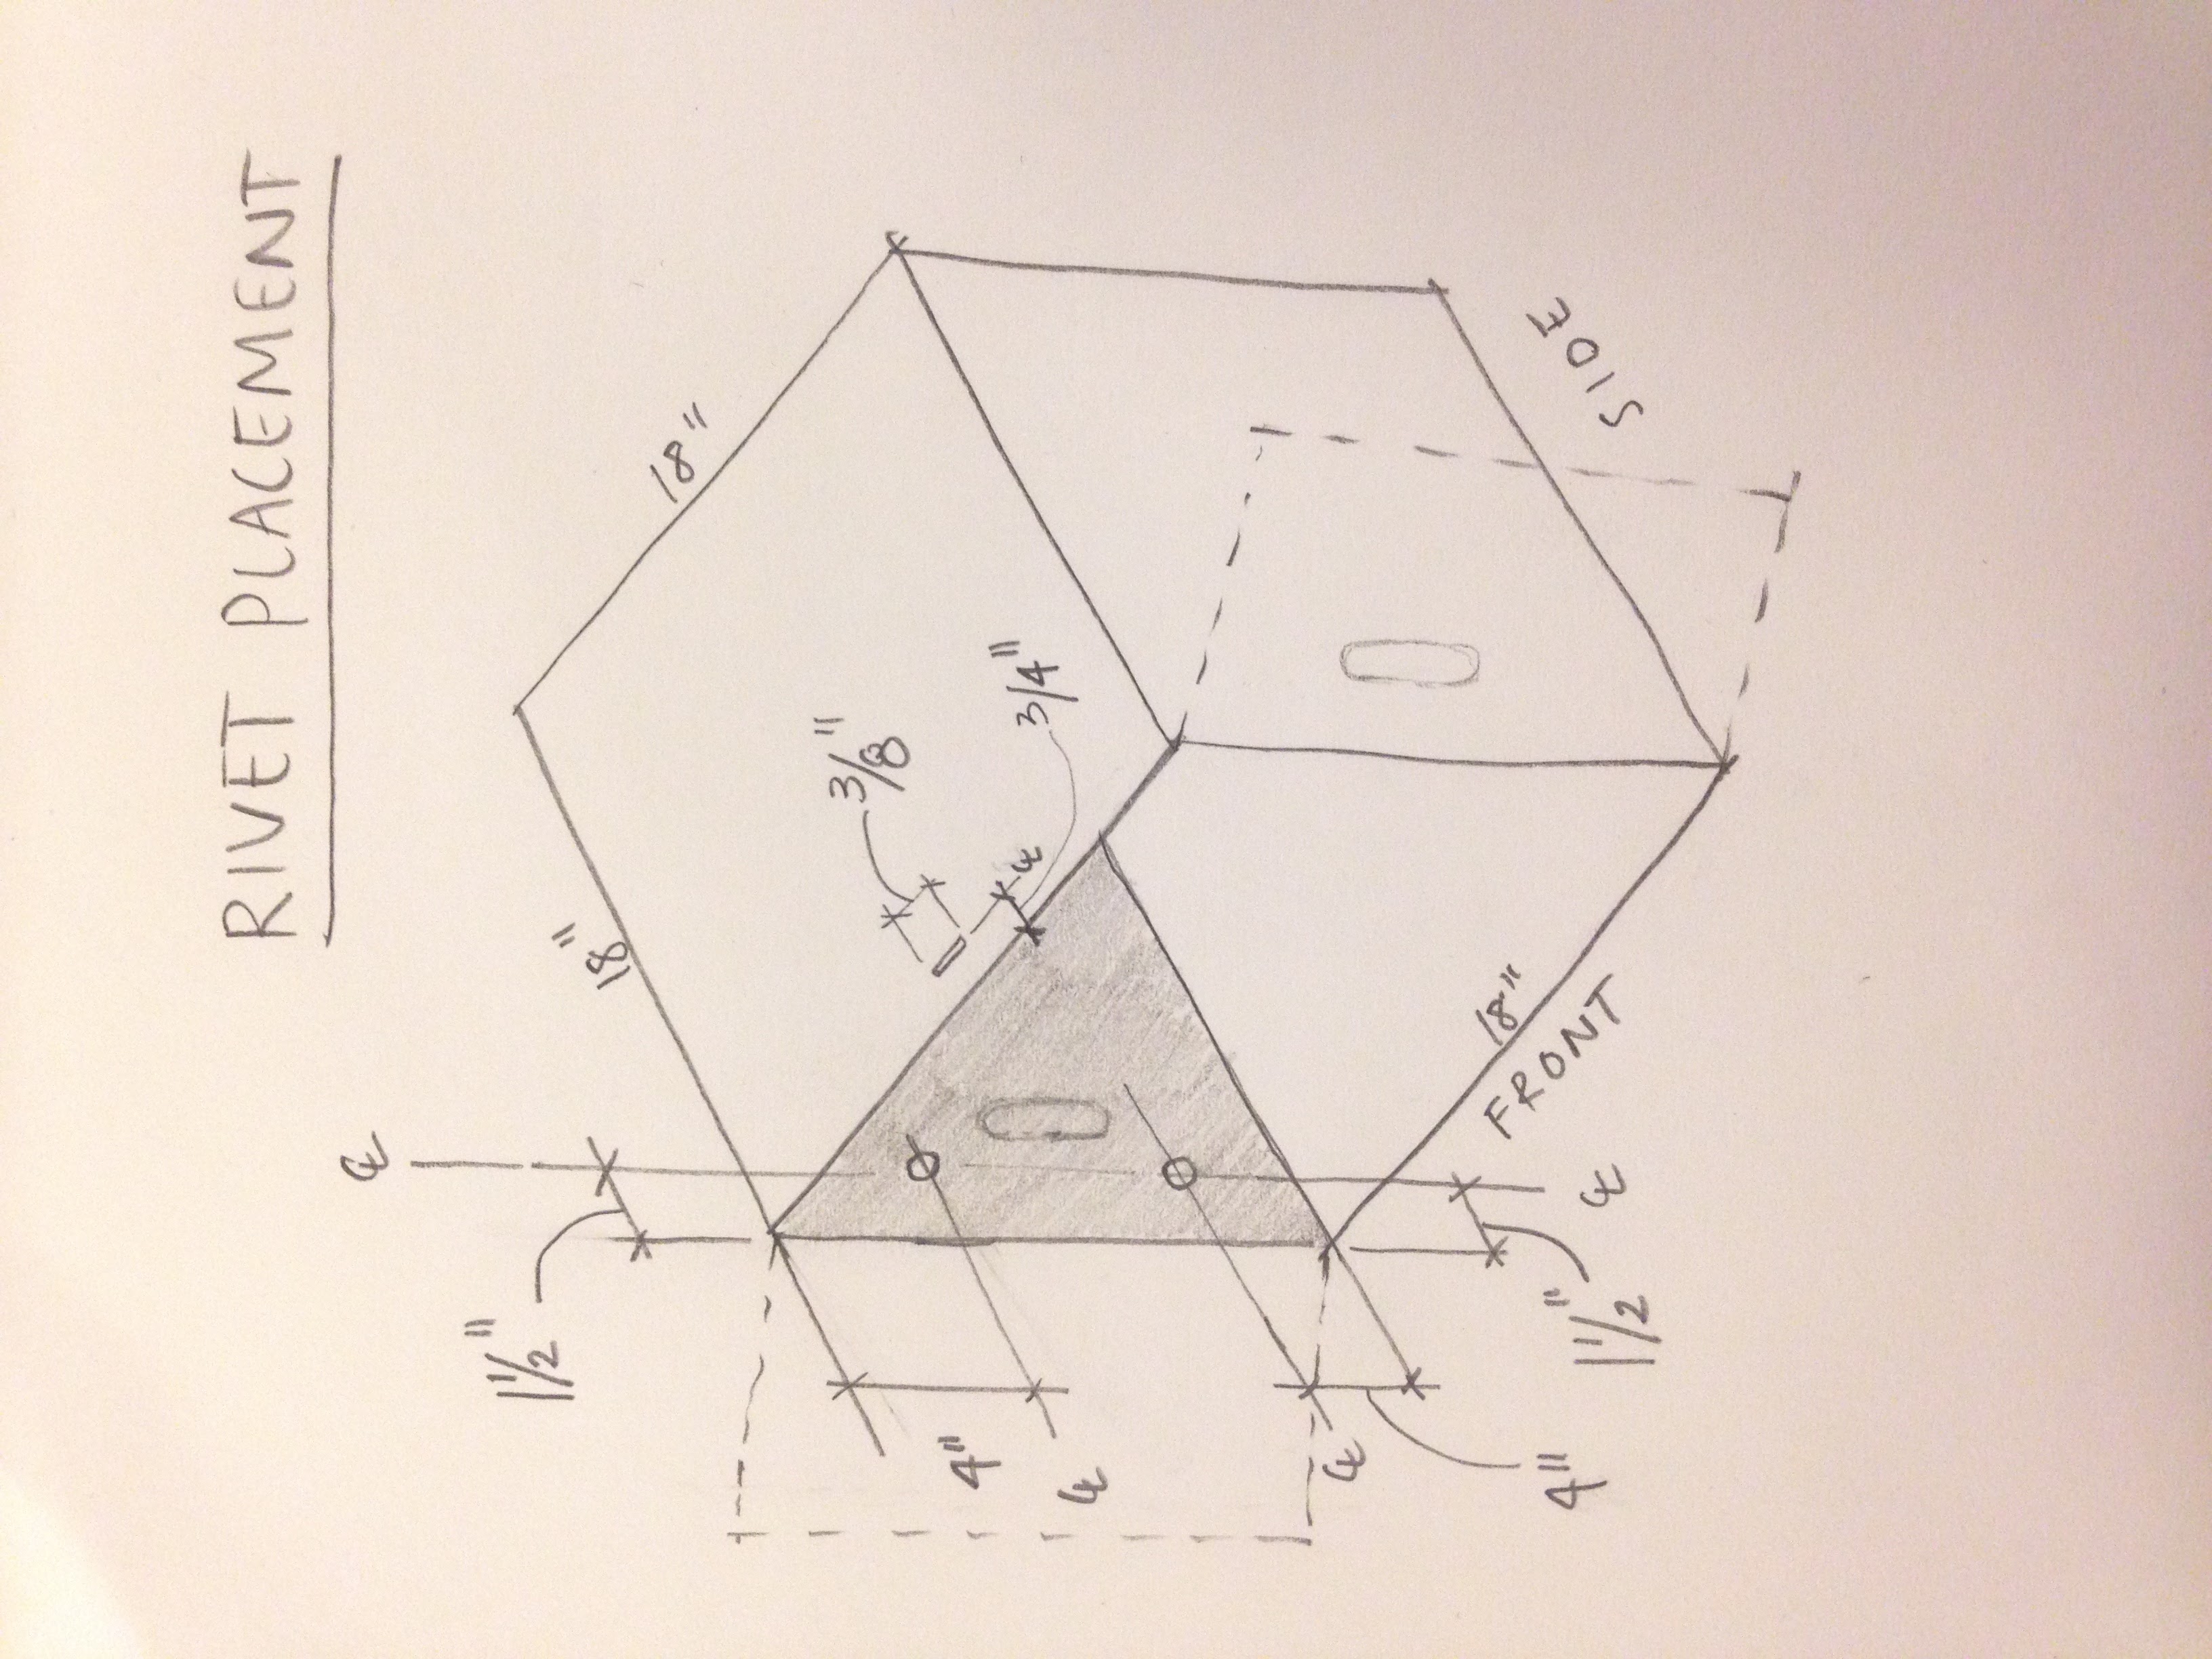 RIVET PLACEMENT
℄
1 1/2"
18"
18"
3/8"
4"
℄
3/4"
℄
℄
4"
1 1/2"
℄
18"
FRONT
SIDE